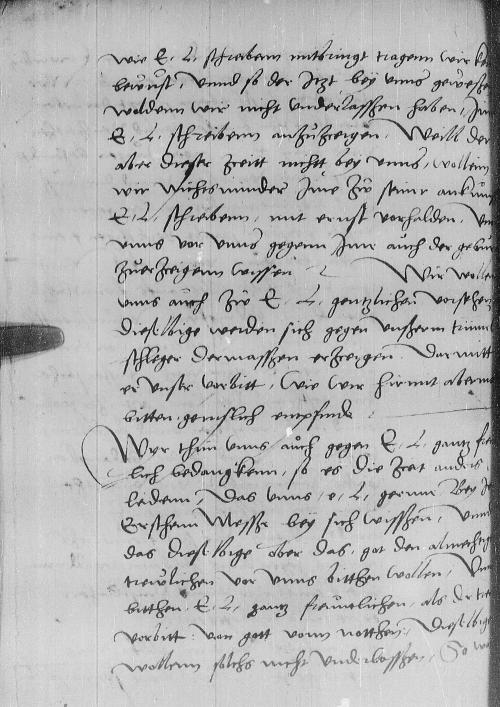 wie E. L. schreibenn mitbringt tragenn wir
bewust, Unnd so der Itzt bey unns gewesen
woldenn wir nicht underlassen haben, Im
E. L. schreibenn anzuzceigen, Weill der
aber dieser zceitt nicht bey unns, wollenn
wir nichtsminder Ime zw seiner ankunft
E. L. schreibenn, mit ernst vorhalden, Unnd
unns vor unns gegenn Ime auch der gebur
zuerzceigenn wissenn Wir wollen
unns auch zw E. L. gentzlichen vorsehen
dieselbige werden sich gegen unserm trum
schleger dermassen erzceigen, Darmitt
er unser vorbitt, Wie wir hirmit abermals
bitten, genislich empfinde
Wyr thun unns auch gegen E. L. gantz freunt
lich bedangkenn, so es die zceit anders
ledenn, Das unns, e. L. gernne Bey
Erschenn Messe bey sich wissen, Unnd
das dieselbige aber das, got den almechtigen
trewlichen vor unns bitthen wollen, Unnd
bitthen E. L. gantz freuntlichen, als der
vorbitt von gott vonn notthen, Dieselbige
wollenn solchs nicht underlassen, So